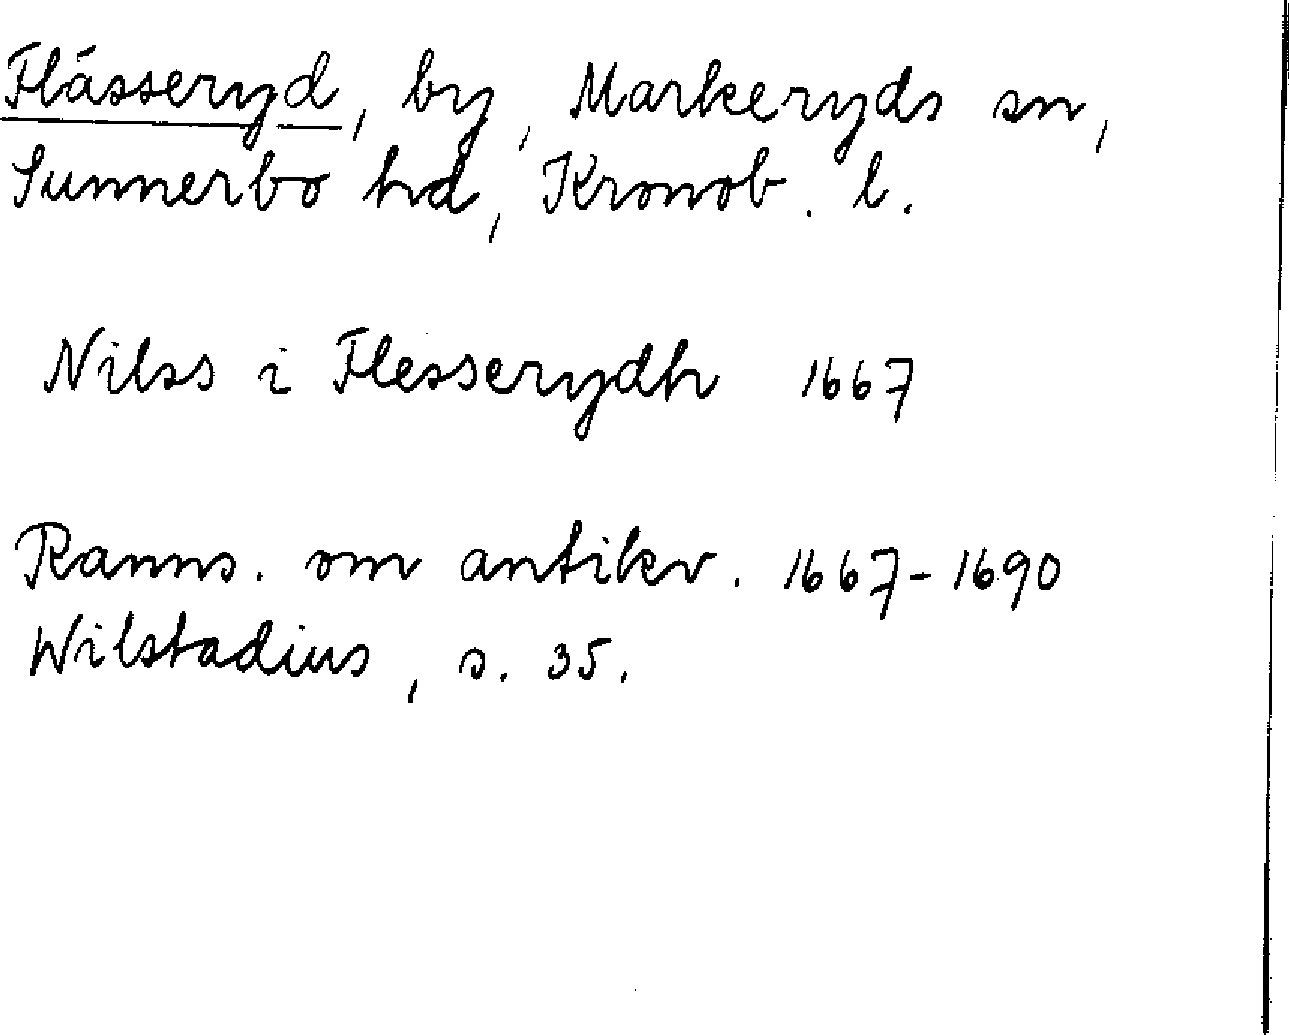 Flässeryd, by, Markeryds sn,
Sunnerbo hd, Kronob. l.
Nilss i Flesserydh 1667
Ranns. om antikv. 1667-1690
Wilstadius, s. 35.